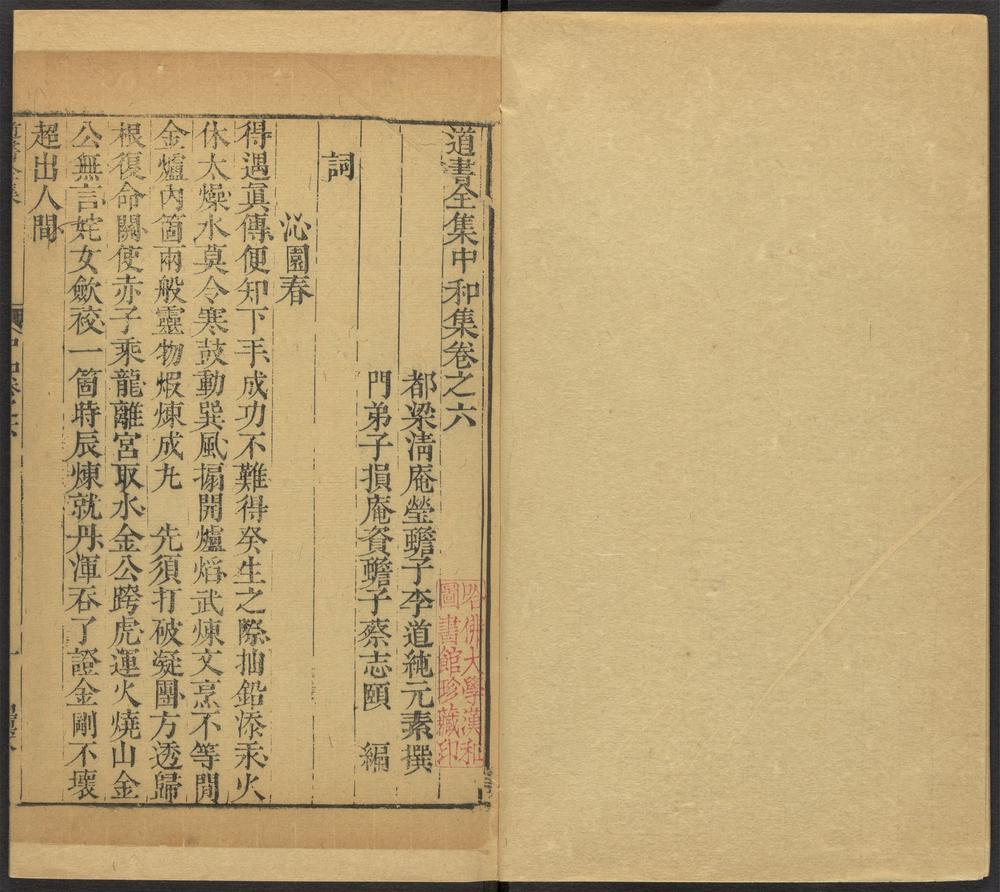 道書全集中和集卷之六
都梁清庵瑩蟾子李道純元素撰
門弟子損庵寶蟾子蔡志頤　編
詞
沁園春
得遇眞傳便知下手成功不難得癸生之際抽鉛添汞火
休太燥水莫令寒鼓動巽風搧開爐焰武煉文烹不等閒
金爐內箇兩般靈物煆煉成九　先須打破凝團方透歸
根復命關使赤子乘龍離宮取水金公跨虎運火燒山金
公無言姹女歛袂一箇時辰煉就丹渾吞了證金剛不壞
超出人間
哈佛大學漢和
圖書館珍藏印